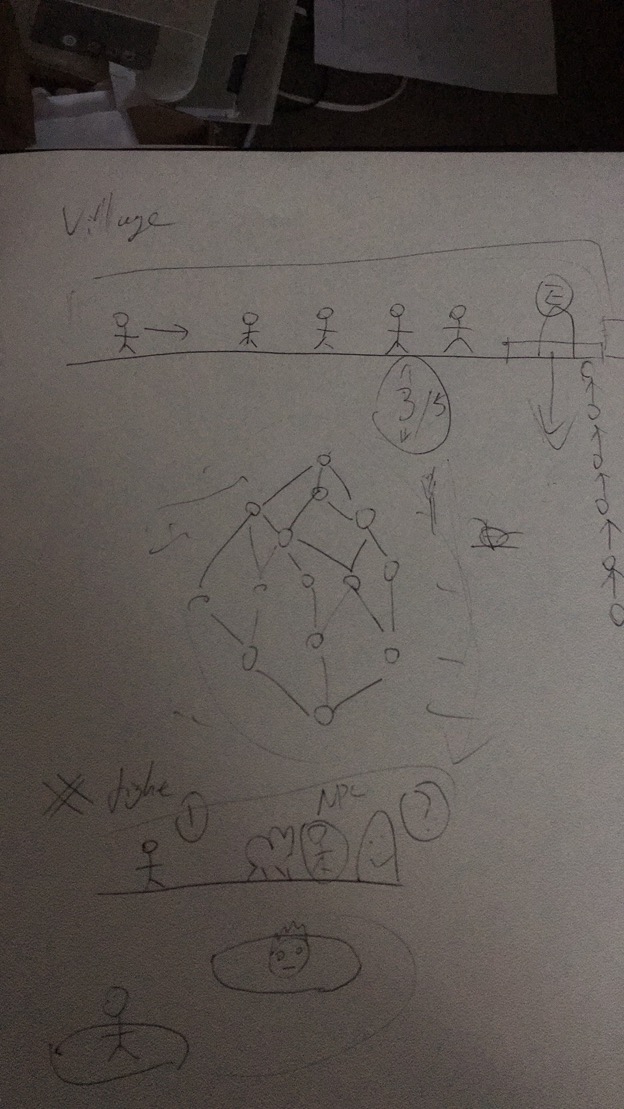 Village
E
3/5
fight
1
NPC
?